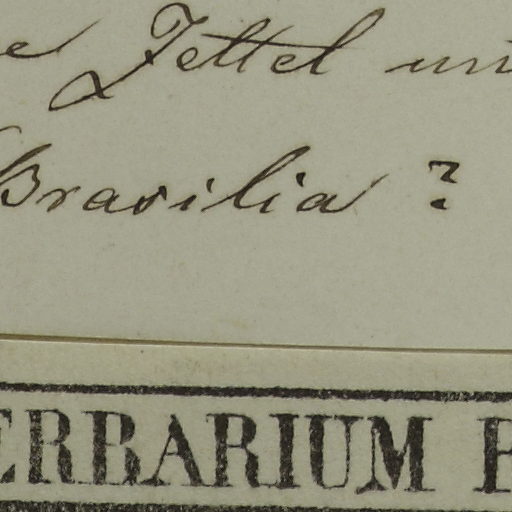 Zettel
Brasilia ?
ERBARIUM